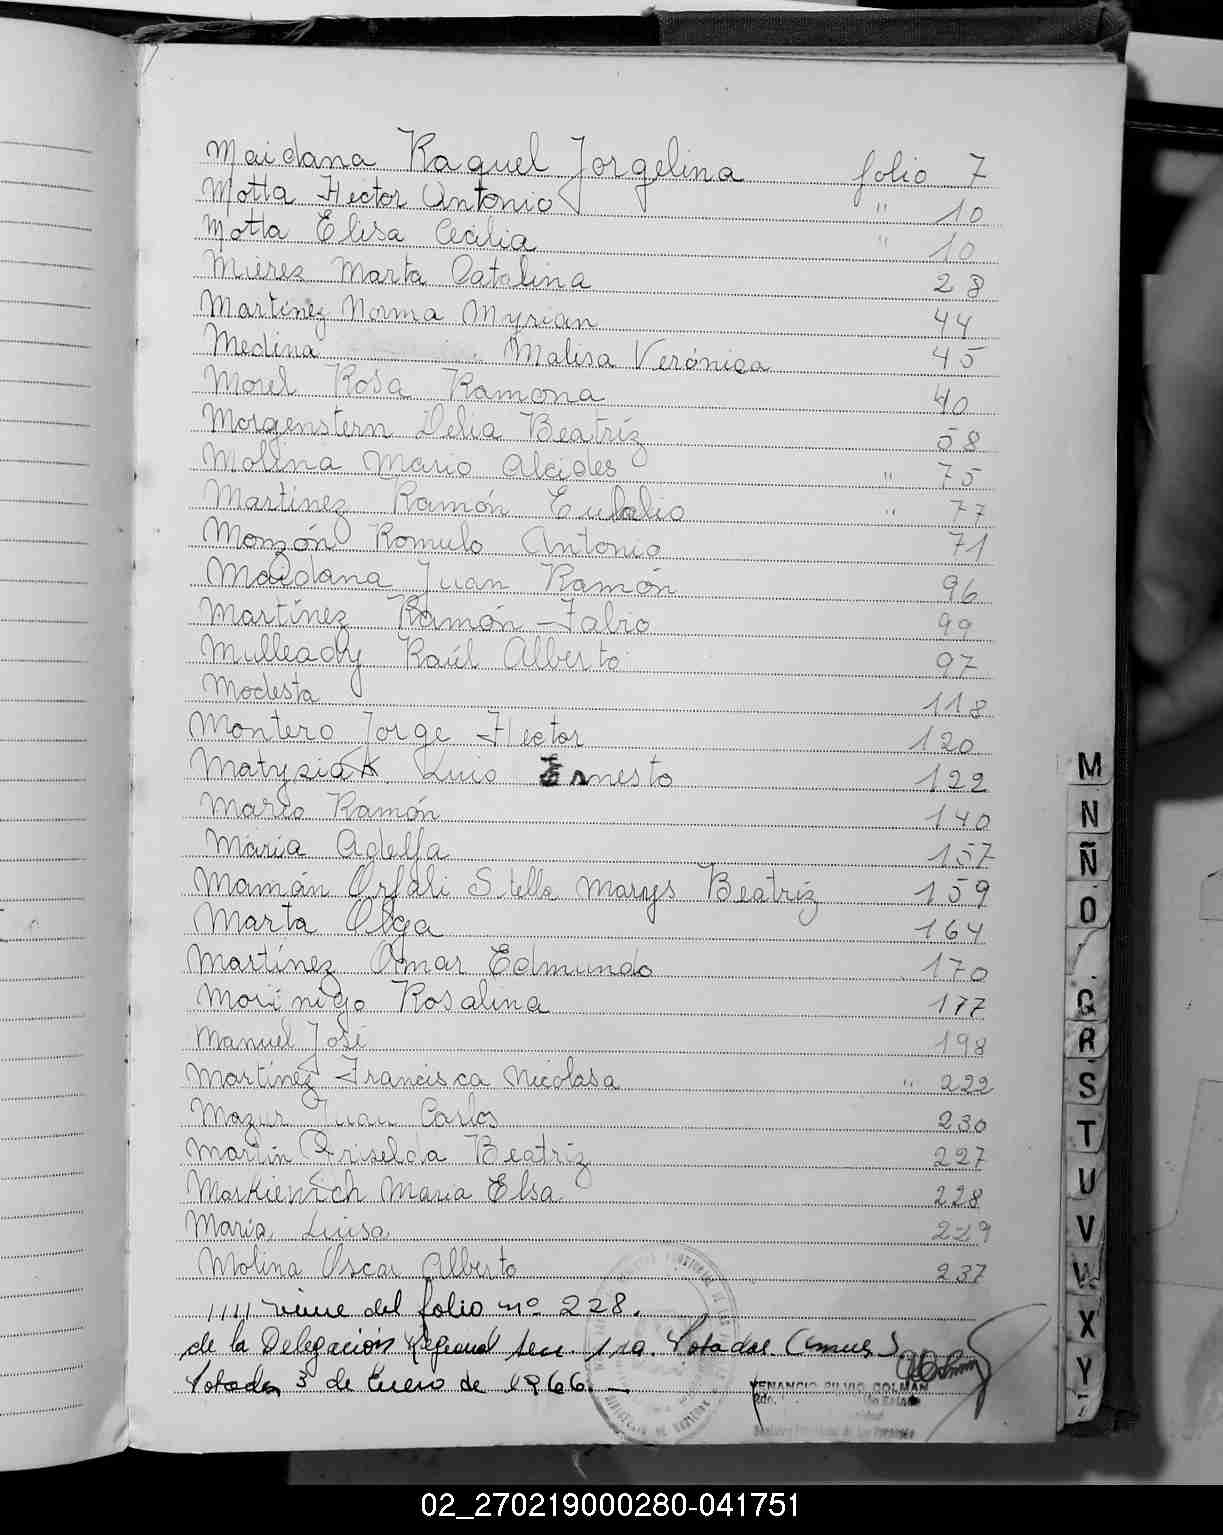 Maidana Raquel Jorgelina folio 7
Motta Hector Antonio " 10
Motta Elisa Cecilia " 10
Mierez Marta Catalina 28
Martínez Norma Myrian 44
Medina Malisa Verónica 45
Morel Rosa Ramona 40
Morgenstern Delia Beatríz 58
Molina Mario Alcides " 75
Martinez Ramón Eulalio " 77
Monzón Romulo Antonio 71
Maidana Juan Ramón 96
Martínez Ramón Fabio 99
Mulleady Raúl Alberto 97
Modesta 118
Montero Jorge Hector 120
Matysiak Luis Ernesto 122
Mario Ramón 140
María Adelfa 157
Mamán Orfali Stella Marys Beatríz 159
Marta Olga 164
Martínez Omar Edmundo 170
Morinigo Rosalina 177
Manuel José 198
Martínez Francisca Nicolasa " 222
Mazur Juan Carlos 230
Martin Griselda Beatriz 227
Maria Elsa 228
María Luisa 229
Molina Oscar Alberto 237
//// viene del folio nº 228.
de la Delegación Regional Secc. 1ra. Posadas (Mnes)
Posadas 3 de Enero de 1966. —
VENANCIO SILVIO COLMAN
M
N
Ñ
O
Q
R
S
T
U
V
W
X
Y
Z
02_270219000280-041751